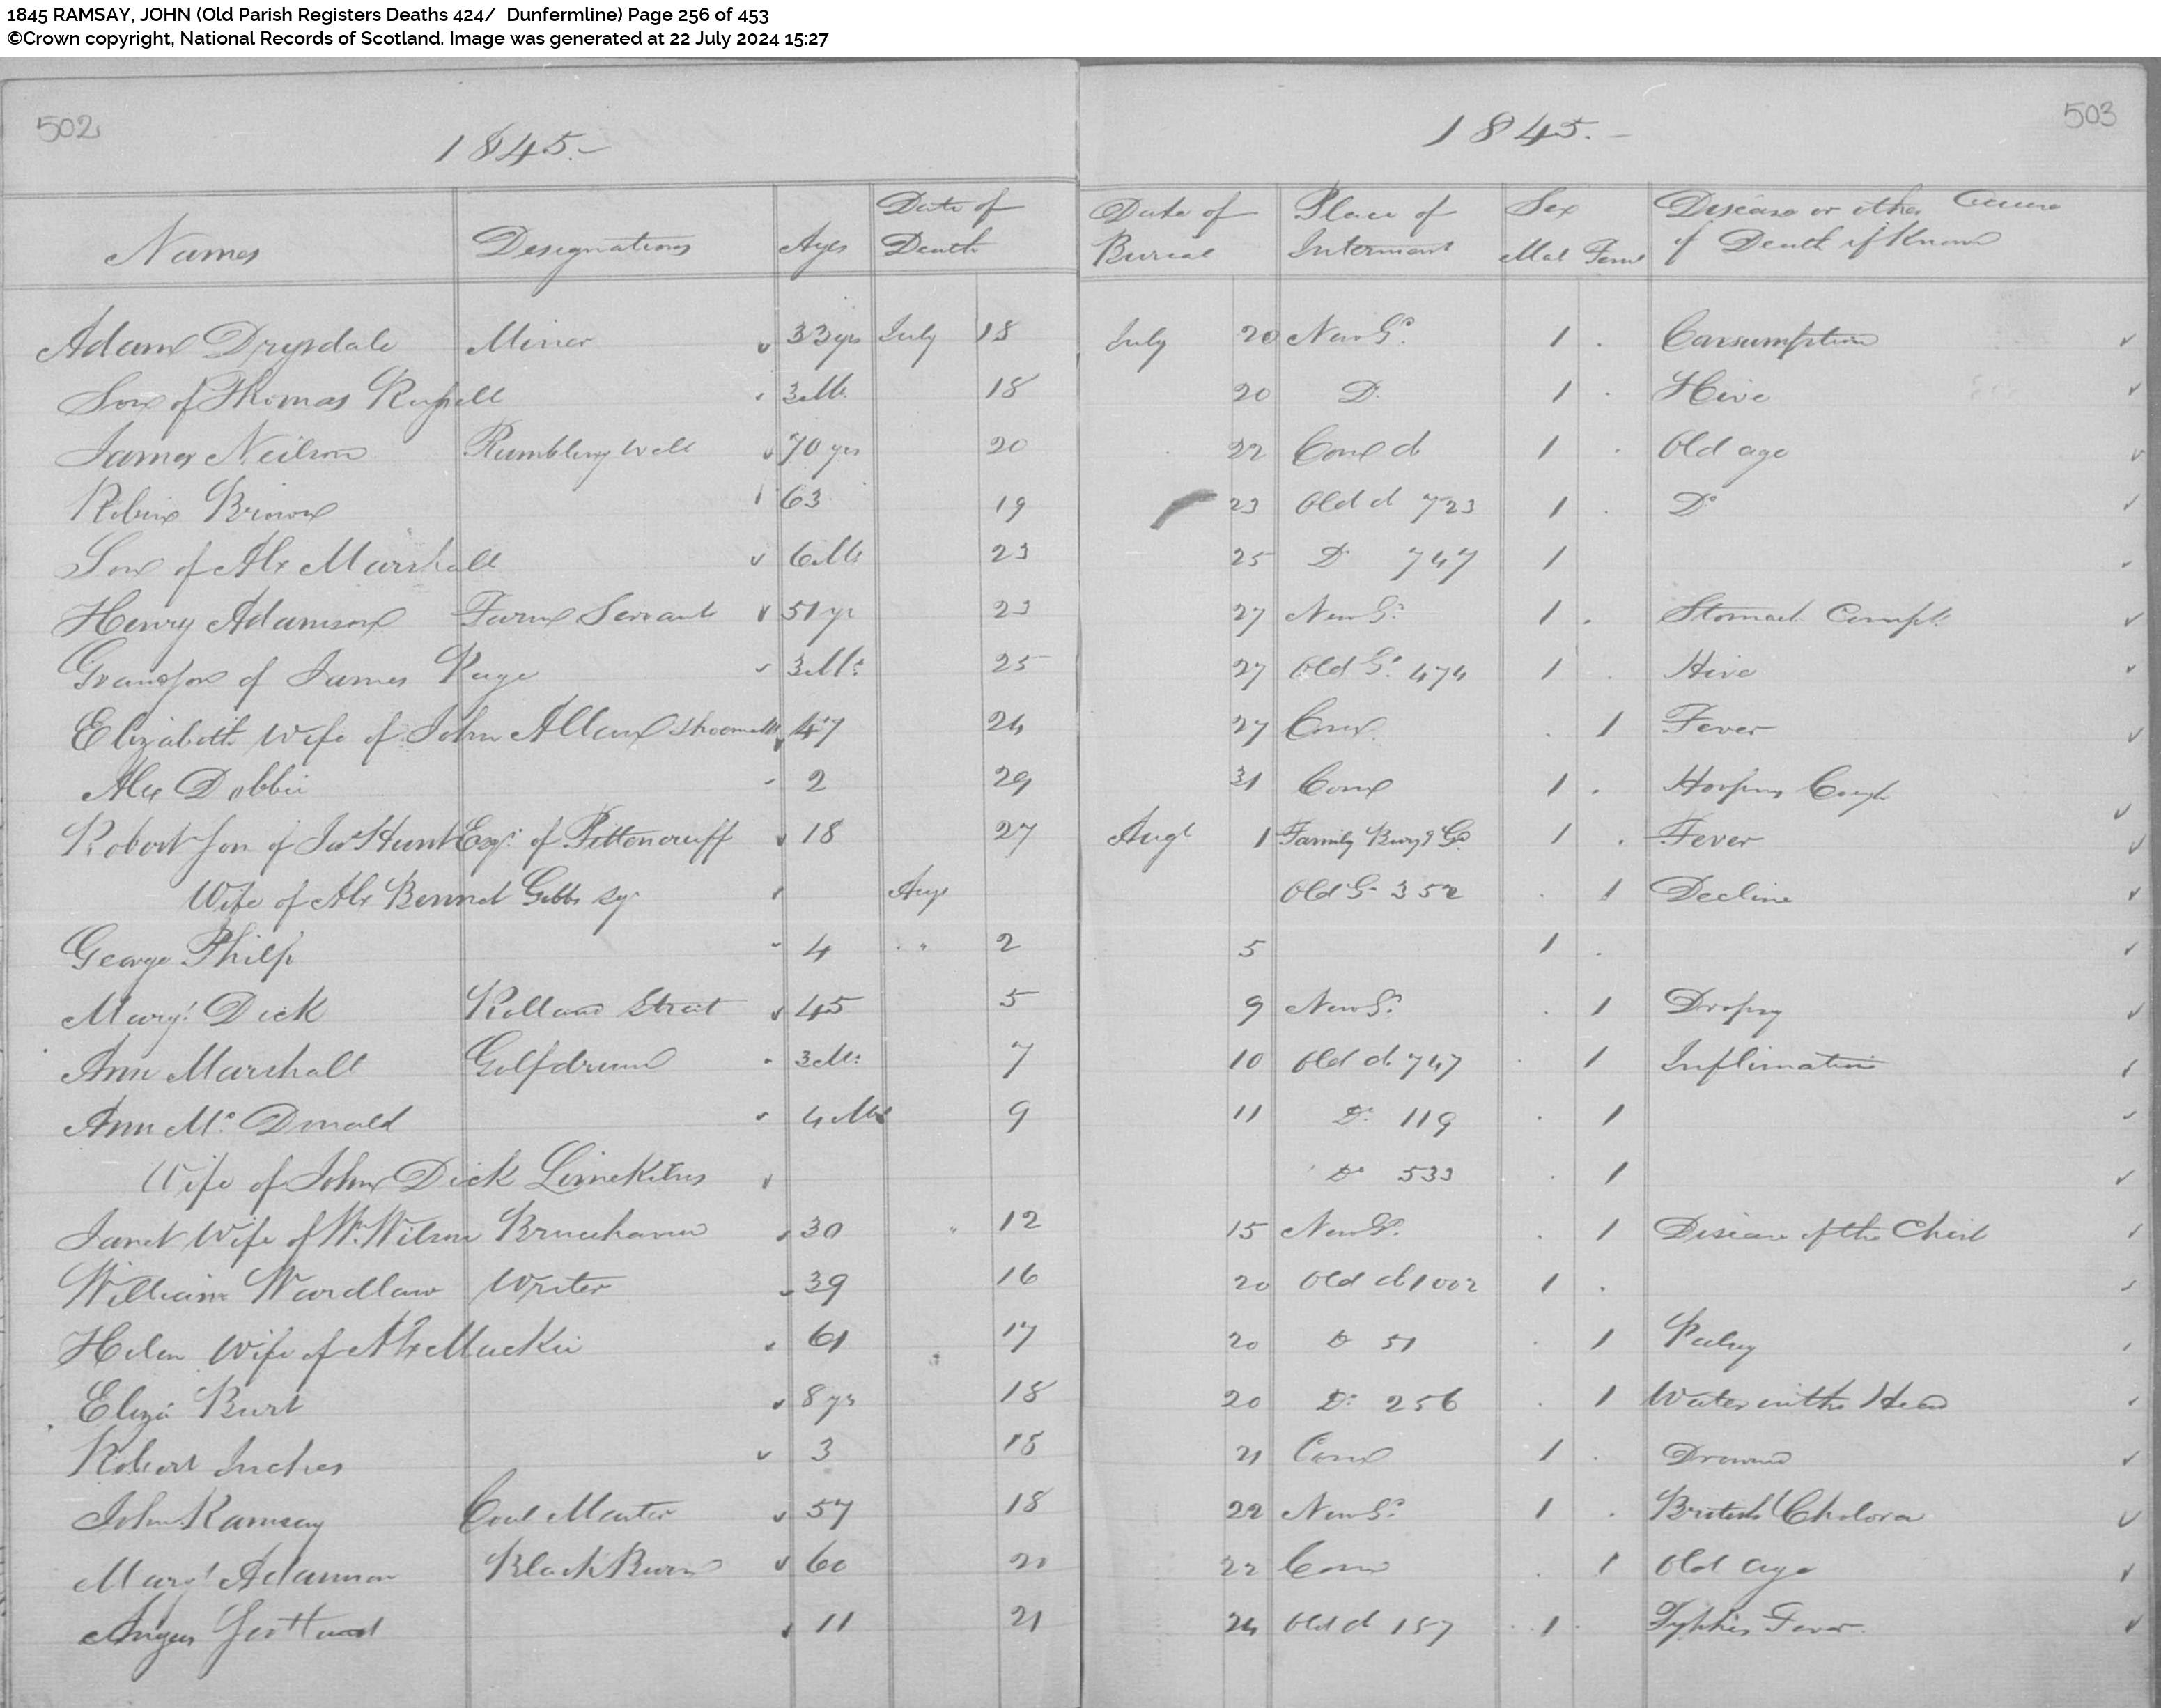 1845 RAMSAY, JOHN (Old Parish Registers Deaths 424/ Dunfermline) Page 256 of 453
©Crown copyright, National Records of Scotland. Image was generated at 22 July 2024 15:27
502 1845.- 1845.- 503
Names Designations Ages Date of Death Date of Burial Place of Interment Sex Mal Fem Disease or other Cause of Death if Known
Adam Drysdale Miner 33 yrs July 18 July 20 New Gd. 1 . Consumption
Son of Thomas Russell 3 Ms. 18 20 Do. 1 . Hive
James Neilson Rumbling Well 70 yrs 20 22 Com d 1 . Old age
Robina Brown 63 19 23 Old d 723 1 . Do
Son of Alr Marshall 6 Ms 23 25 Do 747 1
Henry Adamson Farm Servant 51 yr 23 27 New Gd. 1 . Stomach Compt.
Grandson of James Page 3 Ms. 25 27 Old Gd. 474 1 . Hive
Elizabeth Wife of John Allan Shoemakr 47 24 27 Com . 1 Fever
Alex Dobbie 2 29 31 Com 1 . Hooping Cough
Robert Son of Jas Hunt Esqr. of Pittencrieff 18 27 Augt 1 Family Buryg Gd. 1 . Fever
Wife of Alr Bennet Gibbs Sqr Augt Old Gd. 352 . 1 Decline
George Philp 4 " 2 5 1 .
Margt. Dick Rolland Street 45 5 9 New Gd. . 1 Dropsy
Ann Marshall Golfdrum 3 Ms. 7 10 Old d. 747 . 1 Inflimation
Ann Mc. Donald 4 Ms 9 11 Do. 119 . 1
Wife of John Dick Limekilns Do 533 . 1
Janet Wife of Wm. Wilson Brucehaven 30 " 12 15 New Gd. . 1 Disease of the Chest
William Wardlaw Writer 39 16 20 Old d 1002 1 .
Helen Wife of Alr Mackie 61 17 20 Do 51 . 1 Palsy
Eliza Burt 8 yrs 18 20 Do. 256 . 1 Water in the Head
Robert Inches 3 18 21 Com 1 . Drowned
John Ramsay Coal Master 57 18 22 New Gd. 1 . British Cholera
Margt Adamson Black Burn 60 22 Com . 1 Old age
Angus 11 21 24 Old d 157 1 . Typhis Fever